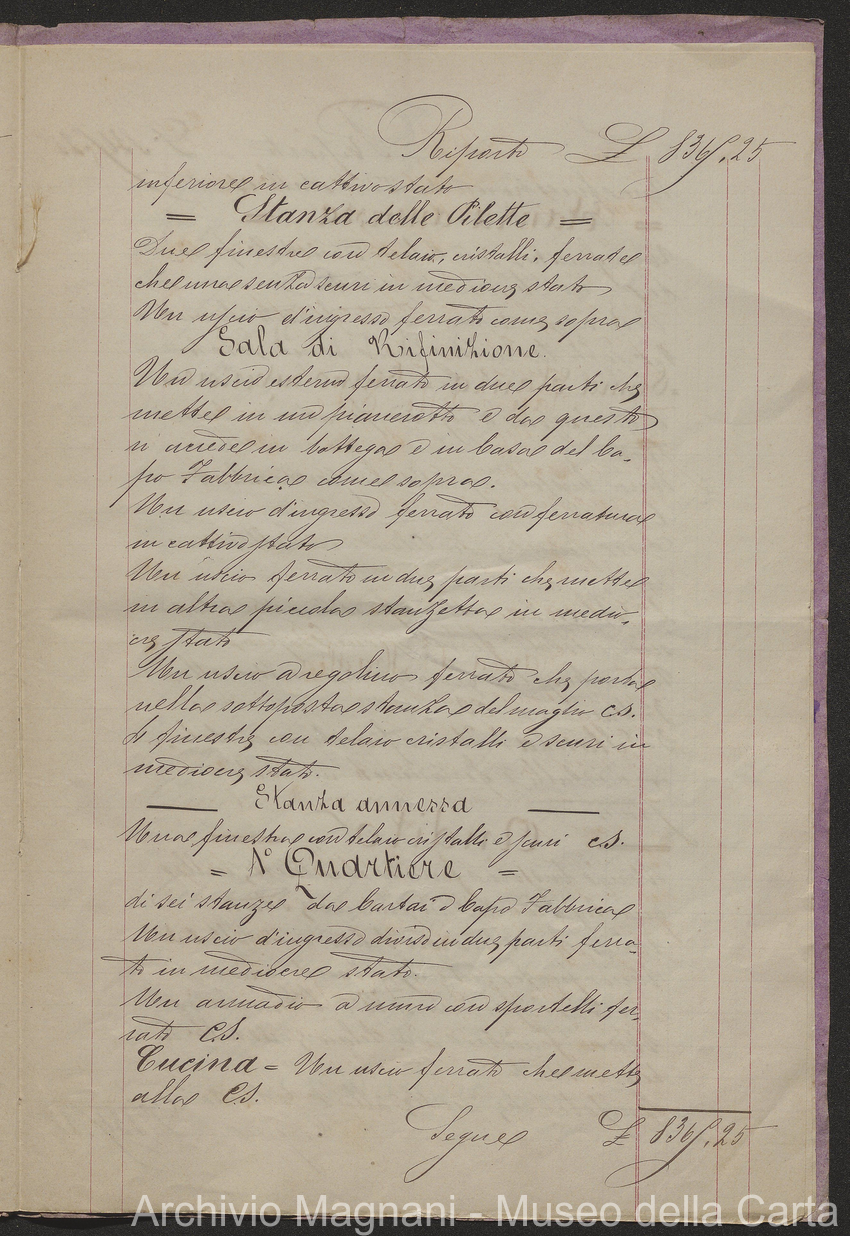 Riporto £ 836,25
inferiore in cattivo stato
= Stanza delle Pilette =
Due finestre con telaio, cristalli, ferrate
che una senza scuri in mediocre stato
Un uscio d'ingresso ferrato come sopra
Sala di Rifinizione.
Un uscio esterno ferrato in due parti che
mette in un pianerotto e da questo
si accede in bottega e in Casa del Ca-
po Fabbrica come sopra.
Un uscio d'ingresso ferrato con ferratura
in cattivo stato
Un uscio ferrato in due parti che mette
in altra piccola stanzetta in medio-
cre stato
Un uscio a regolino ferrato che porta
nella sottoposta stanza del maglio CS.
finestre con telaio cristalli e scuri in
mediocre stato.
Stanza annessa
Una finestra con telaio cristalli e scuri CS.
= N° Quartiere =
di sei stanze da Cartai e Capo Fabbrica
Un uscio d'ingresso diviso in due parti ferra-
to in mediocre stato.
Un armadio a muro con sportelli fer-
rato CS.
Cucina = Un uscio ferrato che mette
alla CS.
Segue £ 836,25
Archivio Magnani - Museo della Carta